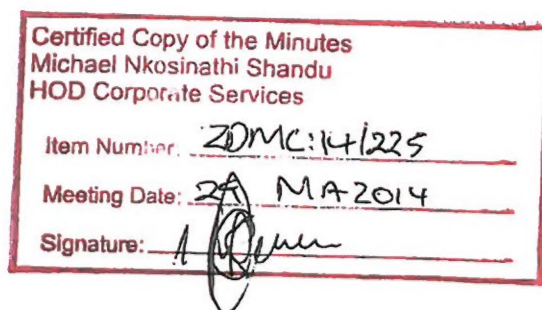 Certified Copy of the Minutes
Michael Nkosinathi Shandu
HOD Corporate Services
Item Number: ZDMC:14/225
Meeting Date: MA2014
Signature: